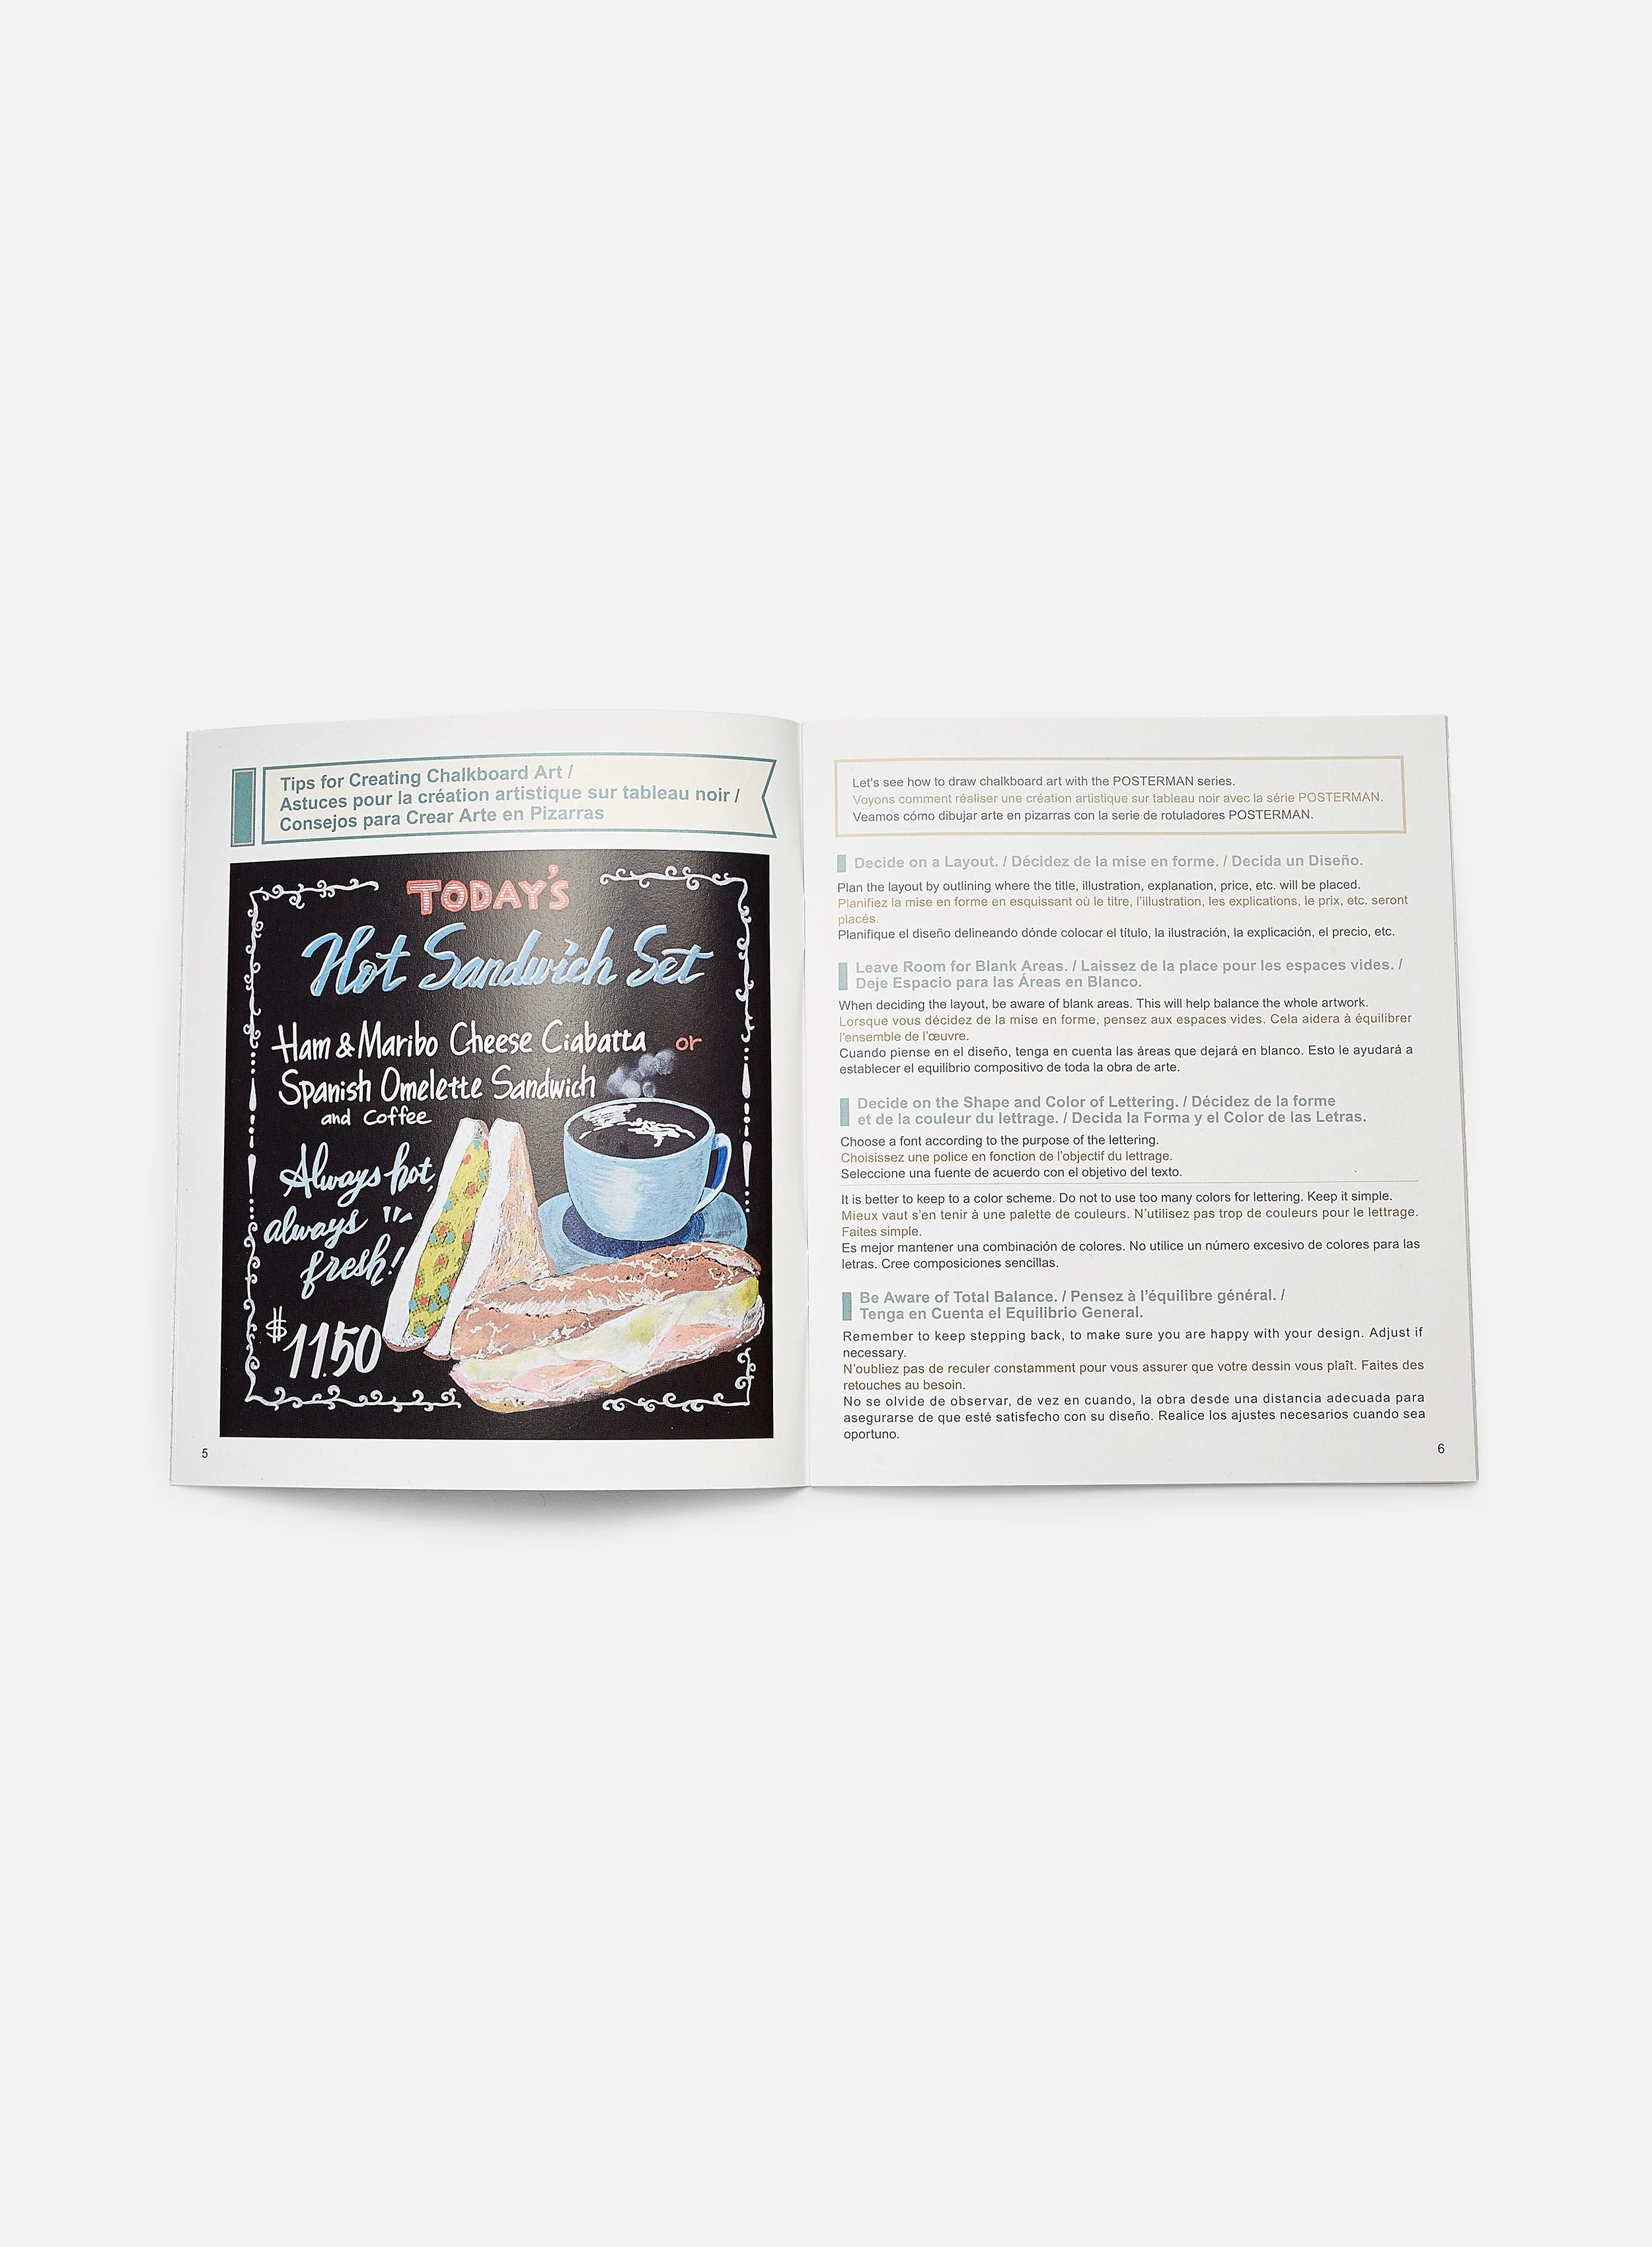 Tips for Creating Chalkboard Art /
Astuces pour la création artistique sur tableau noir /
Consejos para Crear Arte en Pizarras
TODAY'S
Hot Sandwich Set
Ham & Maribo Cheese Ciabatta or
Spanish Omelette Sandwich
and Coffee
Always hot,
always
fresh!
$11.50
5
Let's see how to draw chalkboard art with the POSTERMAN series.
Voyons comment réaliser une création artistique sur tableau noir avec la série POSTERMAN.
Veamos cómo dibujar arte en pizarras con la serie de rotuladores POSTERMAN.
Decide on a Layout. / Décidez de la mise en forme. / Decida un Diseño.
Plan the layout by outlining where the title, illustration, explanation, price, etc. will be placed.
Planifiez la mise en forme en esquissant où le titre, l'illustration, les explications, le prix, etc. seront
placés.
Planifique el diseño delineando dónde colocar el título, la ilustración, la explicación, el precio, etc.
Leave Room for Blank Areas. / Laissez de la place pour les espaces vides. /
Deje Espacio para las Áreas en Blanco.
When deciding the layout, be aware of blank areas. This will help balance the whole artwork.
Lorsque vous décidez de la mise en forme, pensez aux espaces vides. Cela aidera à équilibrer
l'ensemble de l'œuvre.
Cuando piense en el diseño, tenga en cuenta las áreas que dejará en blanco. Esto le ayudará a
establecer el equilibrio compositivo de toda la obra de arte.
Decide on the Shape and Color of Lettering. / Décidez de la forme
et de la couleur du lettrage. / Decida la Forma y el Color de las Letras.
Choose a font according to the purpose of the lettering.
Choisissez une police en fonction de l'objectif du lettrage.
Seleccione una fuente de acuerdo con el objetivo del texto.
It is better to keep to a color scheme. Do not to use too many colors for lettering. Keep it simple.
Mieux vaut s'en tenir à une palette de couleurs. N'utilisez pas trop de couleurs pour le lettrage.
Faites simple.
Es mejor mantener una combinación de colores. No utilice un número excesivo de colores para las
letras. Cree composiciones sencillas.
Be Aware of Total Balance. / Pensez à l'équilibre général. /
Tenga en Cuenta el Equilibrio General.
Remember to keep stepping back, to make sure you are happy with your design. Adjust if
necessary.
N'oubliez pas de reculer constamment pour vous assurer que votre dessin vous plaît. Faites des
retouches au besoin.
No se olvide de observar, de vez en cuando, la obra desde una distancia adecuada para
asegurarse de que esté satisfecho con su diseño. Realice los ajustes necesarios cuando sea
oportuno.
6